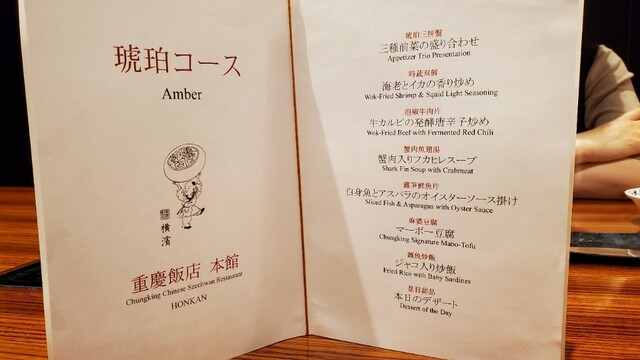 琥珀コース
Amber
横濱
重慶飯店 本館
Chungking Chinese Szechwan Restaurant
HONKAN
琥珀三拼盤
三種前菜の盛り合わせ
Appetizer Trio Presentation
時蔬双鮮
海老とイカの香り炒め
Wok-Fried Shrimp & Squid Light Seasoning
泡椒牛肉片
牛カルビの発酵唐辛子炒め
Wok-Fried Beef with Fermented Red Chili
蟹肉魚翅湯
蟹肉入りフカヒレスープ
Shark Fin Soup with Crabmeat
蘆笋鮮魚片
白身魚とアスパラのオイスターソース掛け
Sliced Fish & Asparagus with Oyster Sauce
麻婆豆腐
マーボー豆腐
Chungking Signature Mabo-Tofu
魚炒飯
ジャコ入り炒飯
Fried Rice with Baby Sardines
是日甜品
本日のデザート
Dessert of the Day